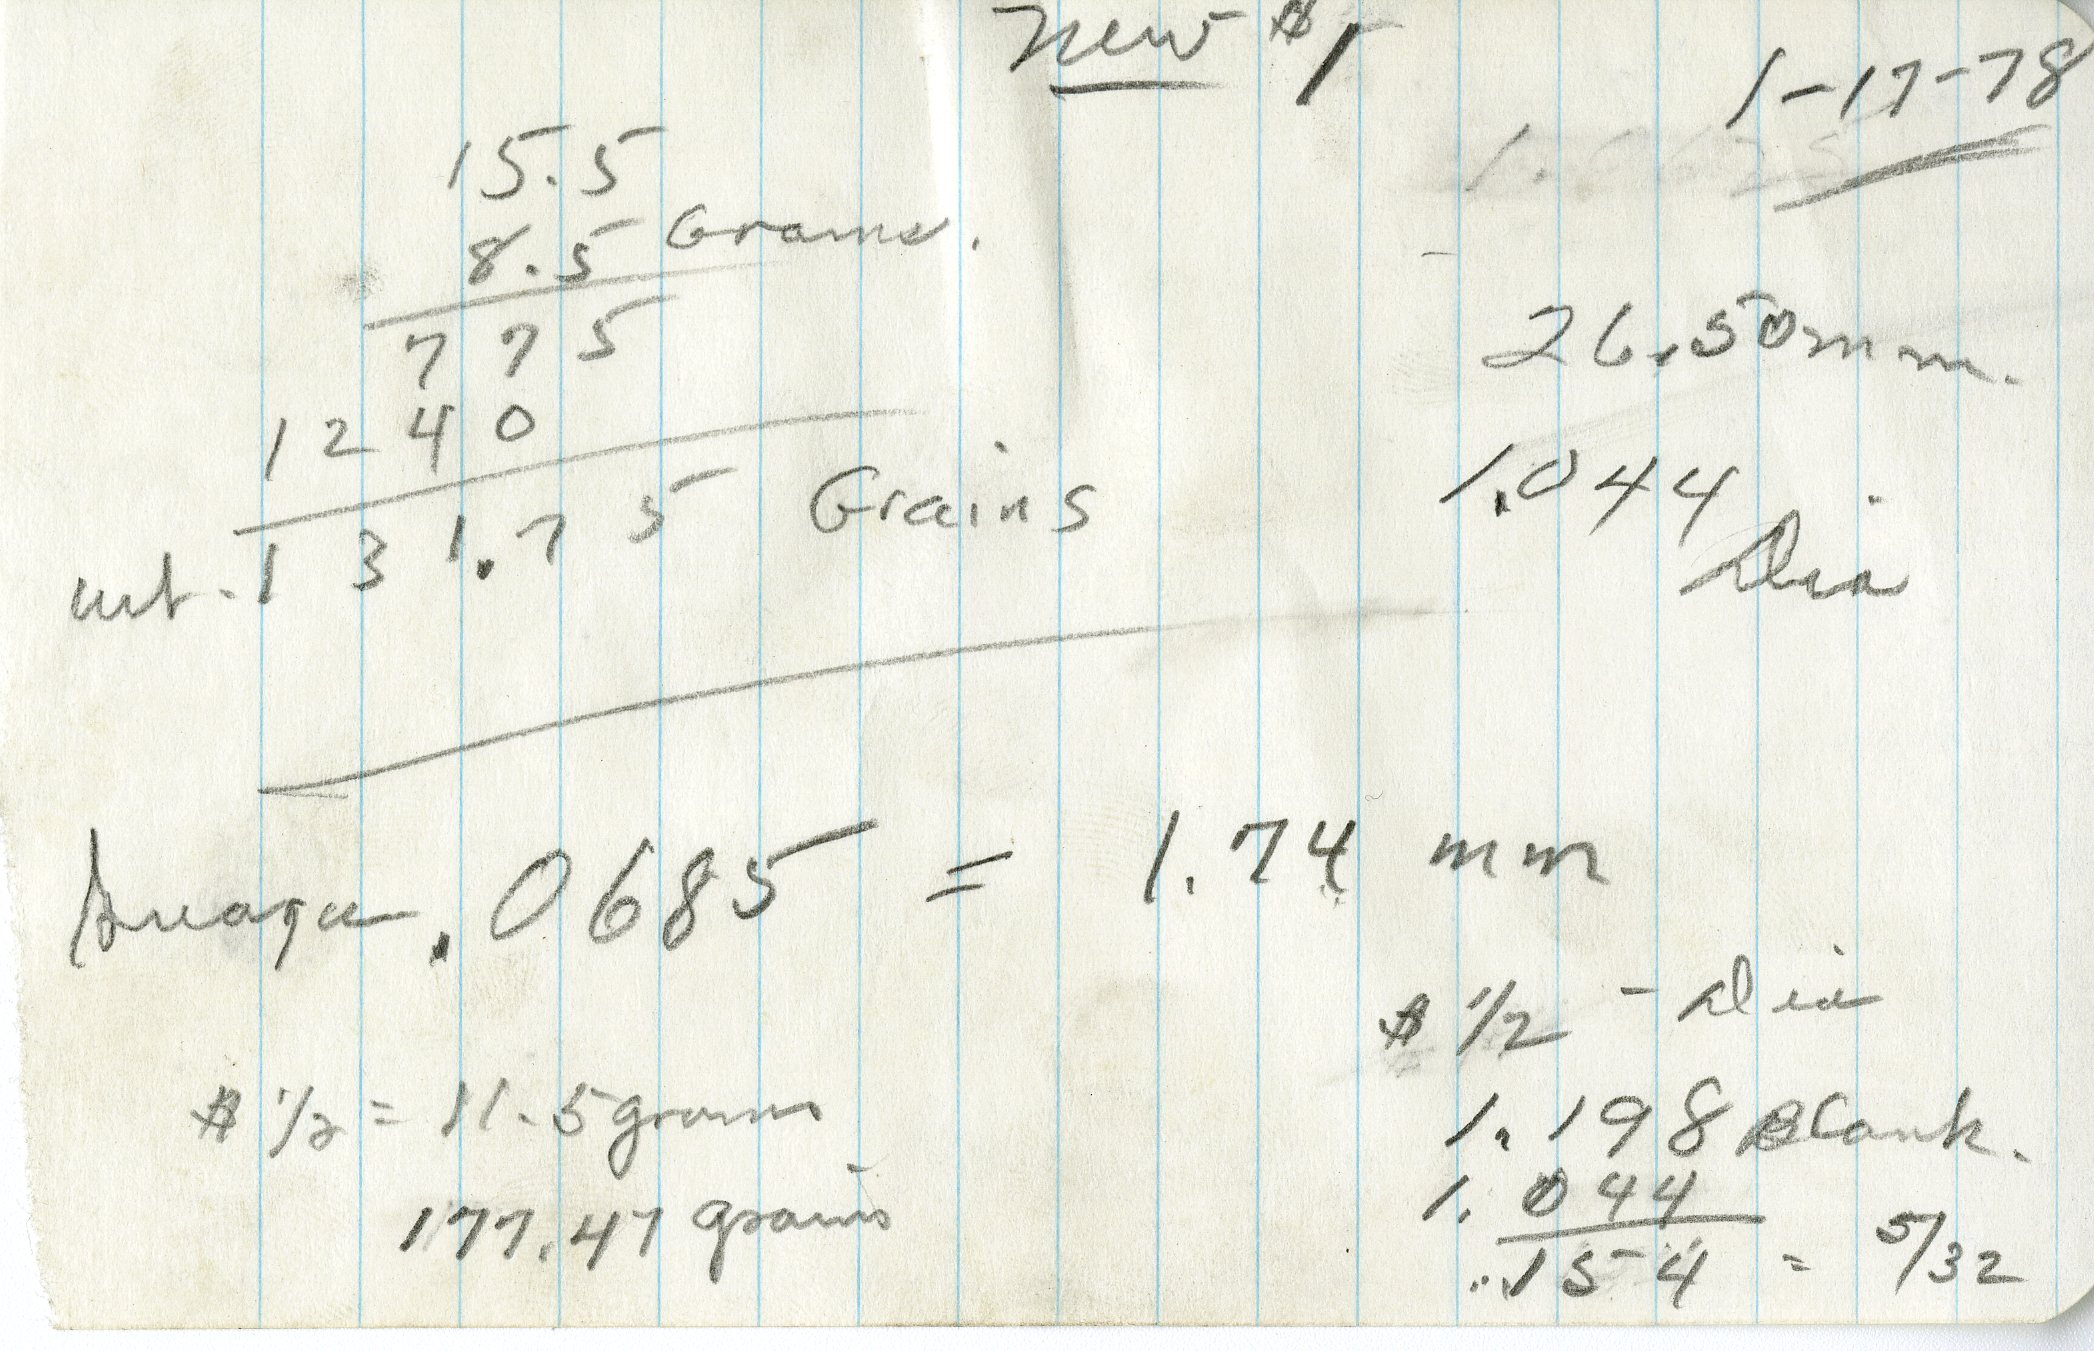 New $1
1-17-78
15.5
8.5 Grams.
775
1240
wt. 131.75 Grains
26.50mm.
1.044
Dia
.0685 = 1.74 mm
$ 1/2 - Dia
1.198 Blank.
1.044
.154 = 5/32
$ 1/2 = 11.5 grams
177.47 grains